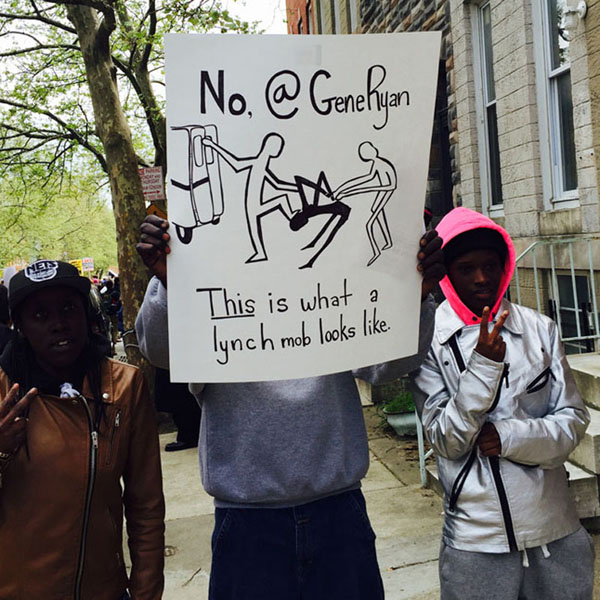 No, @GeneRyan
This is what a
lynch mob looks like.
NETS